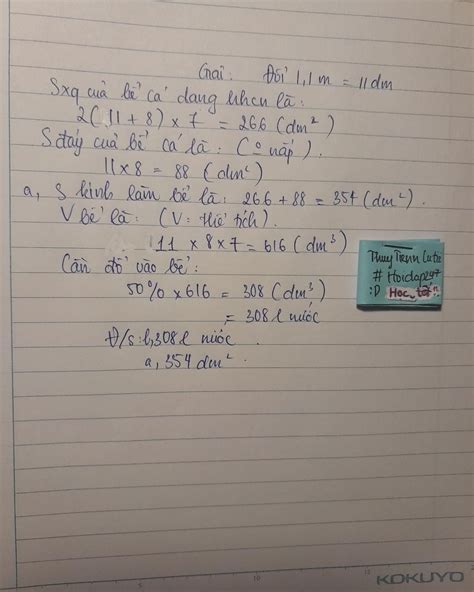 Giải: Đổi 1,1 m = 11 dm
Sxq của bể cá dạng hhcn là:
2(11 + 8) x 7 = 266 (dm²)
S đáy của bể cá là: (0 nắp).
11 x 8 = 88 (dm²)
a, S kính làm bể là: 266 + 88 = 354 (dm²).
V bể là: (V: thể tích).
11 x 8 x 7 = 616 (dm³)
Cần đổ vào bể:
50% x 616 = 308 (dm³)
= 308 l nước
Đ/s: b, 308 l nước.
a, 354 dm².
Thuy Trinh
# Hoidap247
:D Học tốt
5
10
15
KOKUYO